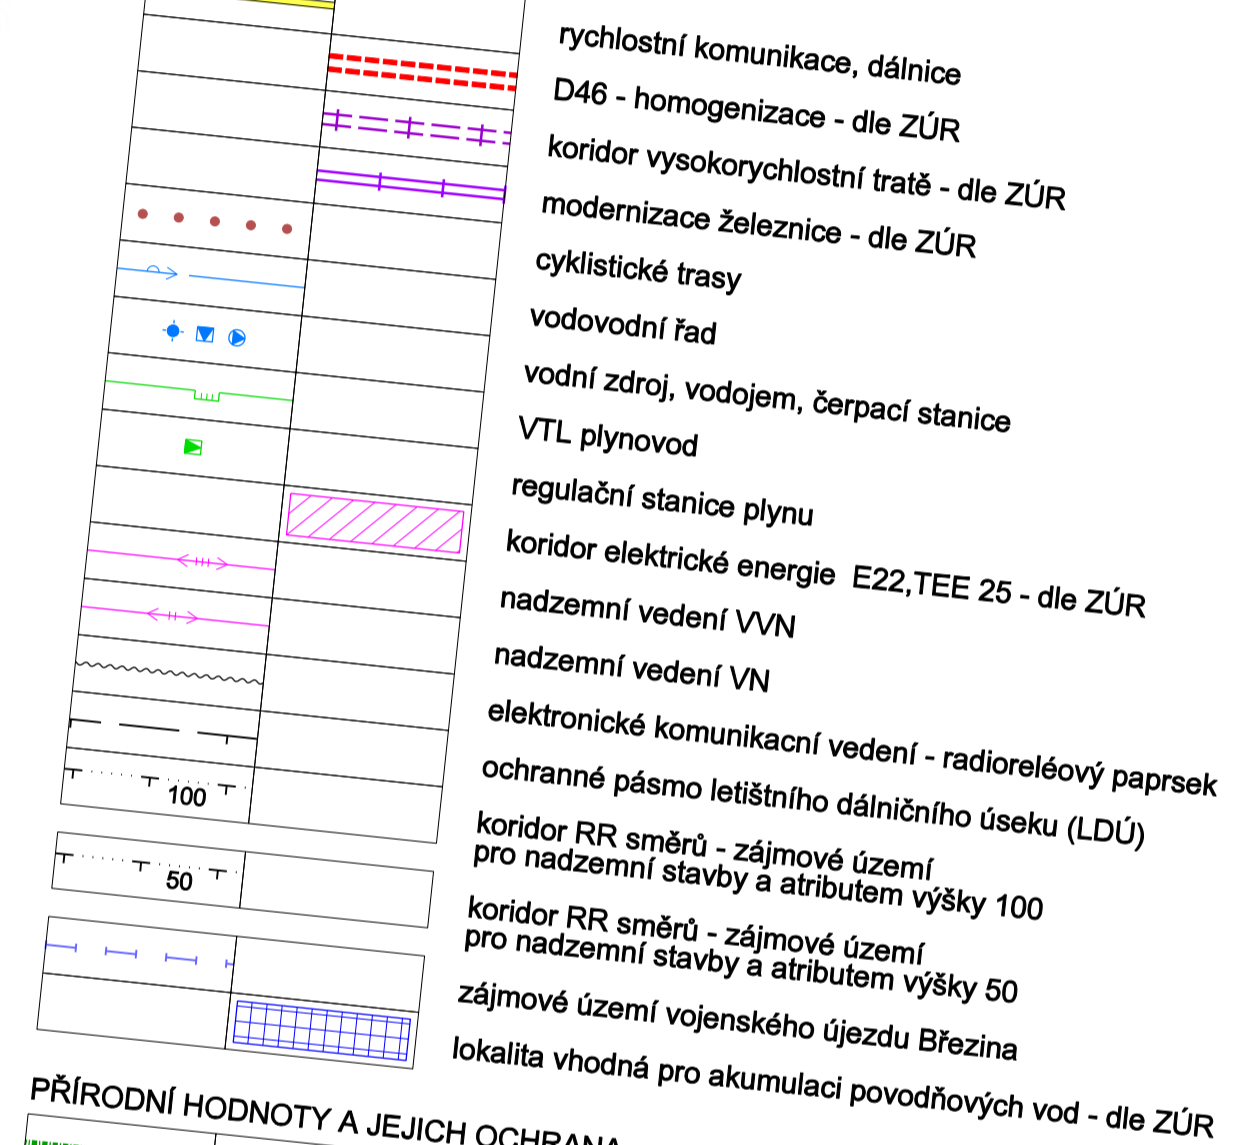 rychlostní komunikace, dálnice
D46 - homogenizace - dle ZÚR
koridor vysokorychlostní tratě - dle ZÚR
modernizace železnice - dle ZÚR
cyklistické trasy
vodovodní řad
vodní zdroj, vodojem, čerpací stanice
VTL plynovod
regulační stanice plynu
koridor elektrické energie E22,TEE 25 - dle ZÚR
nadzemní vedení VVN
nadzemní vedení VN
elektronické komunikacní vedení - radioreléový paprsek
ochranné pásmo letištního dálničního úseku (LDÚ)
100
koridor RR směrů - zájmové území
pro nadzemní stavby a atributem výšky 100
50
koridor RR směrů - zájmové území
pro nadzemní stavby a atributem výšky 50
zájmové území vojenského újezdu Březina
lokalita vhodná pro akumulaci povodňových vod - dle ZÚR
PŘÍRODNÍ HODNOTY A JEJICH OCHRANA